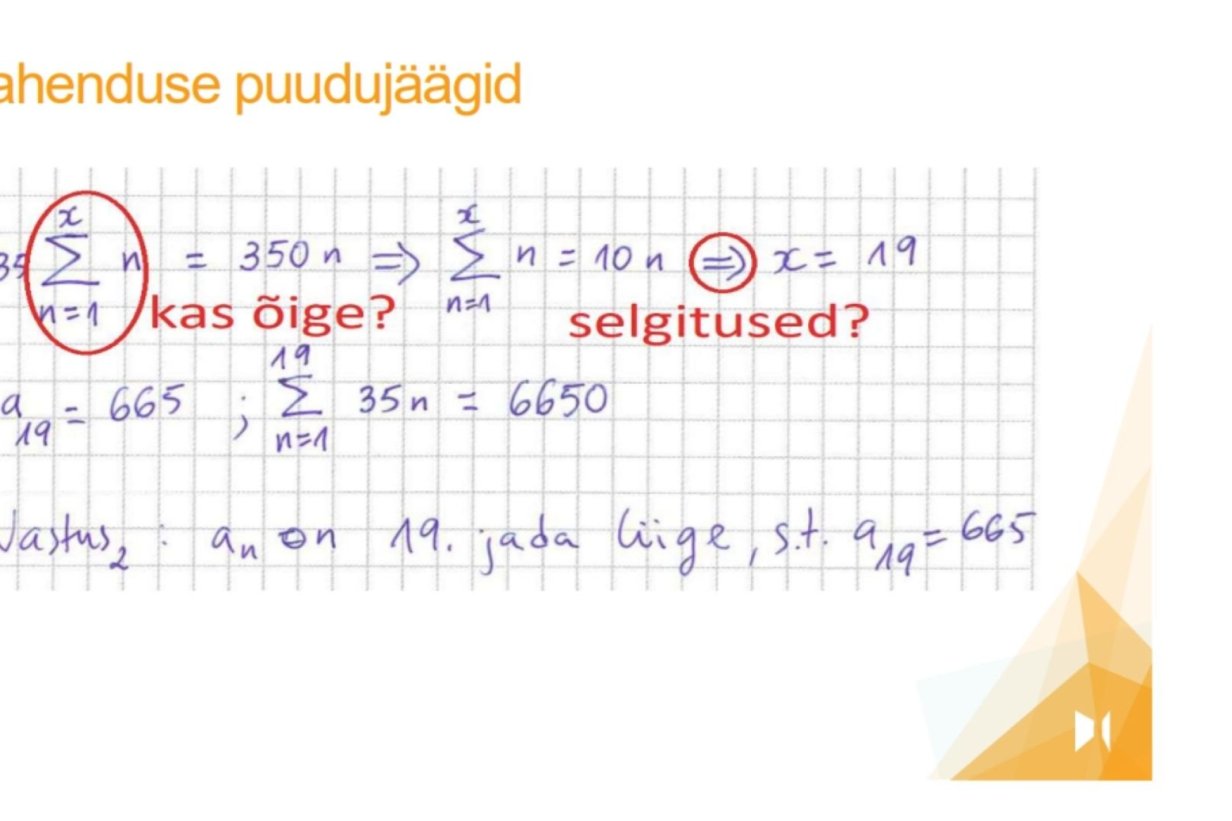 ahenduse puudujäägid
35 ∑_{n=1}^{x} n = 350 n ⇒ ∑_{n=1}^{x} n = 10 n ⇒ x = 19
kas õige? selgitused?
a_{19} = 665 ; ∑_{n=1}^{19} 35 n = 6650
Vastus_2 : a_n on 19. jada liige, s.t. a_{19} = 665